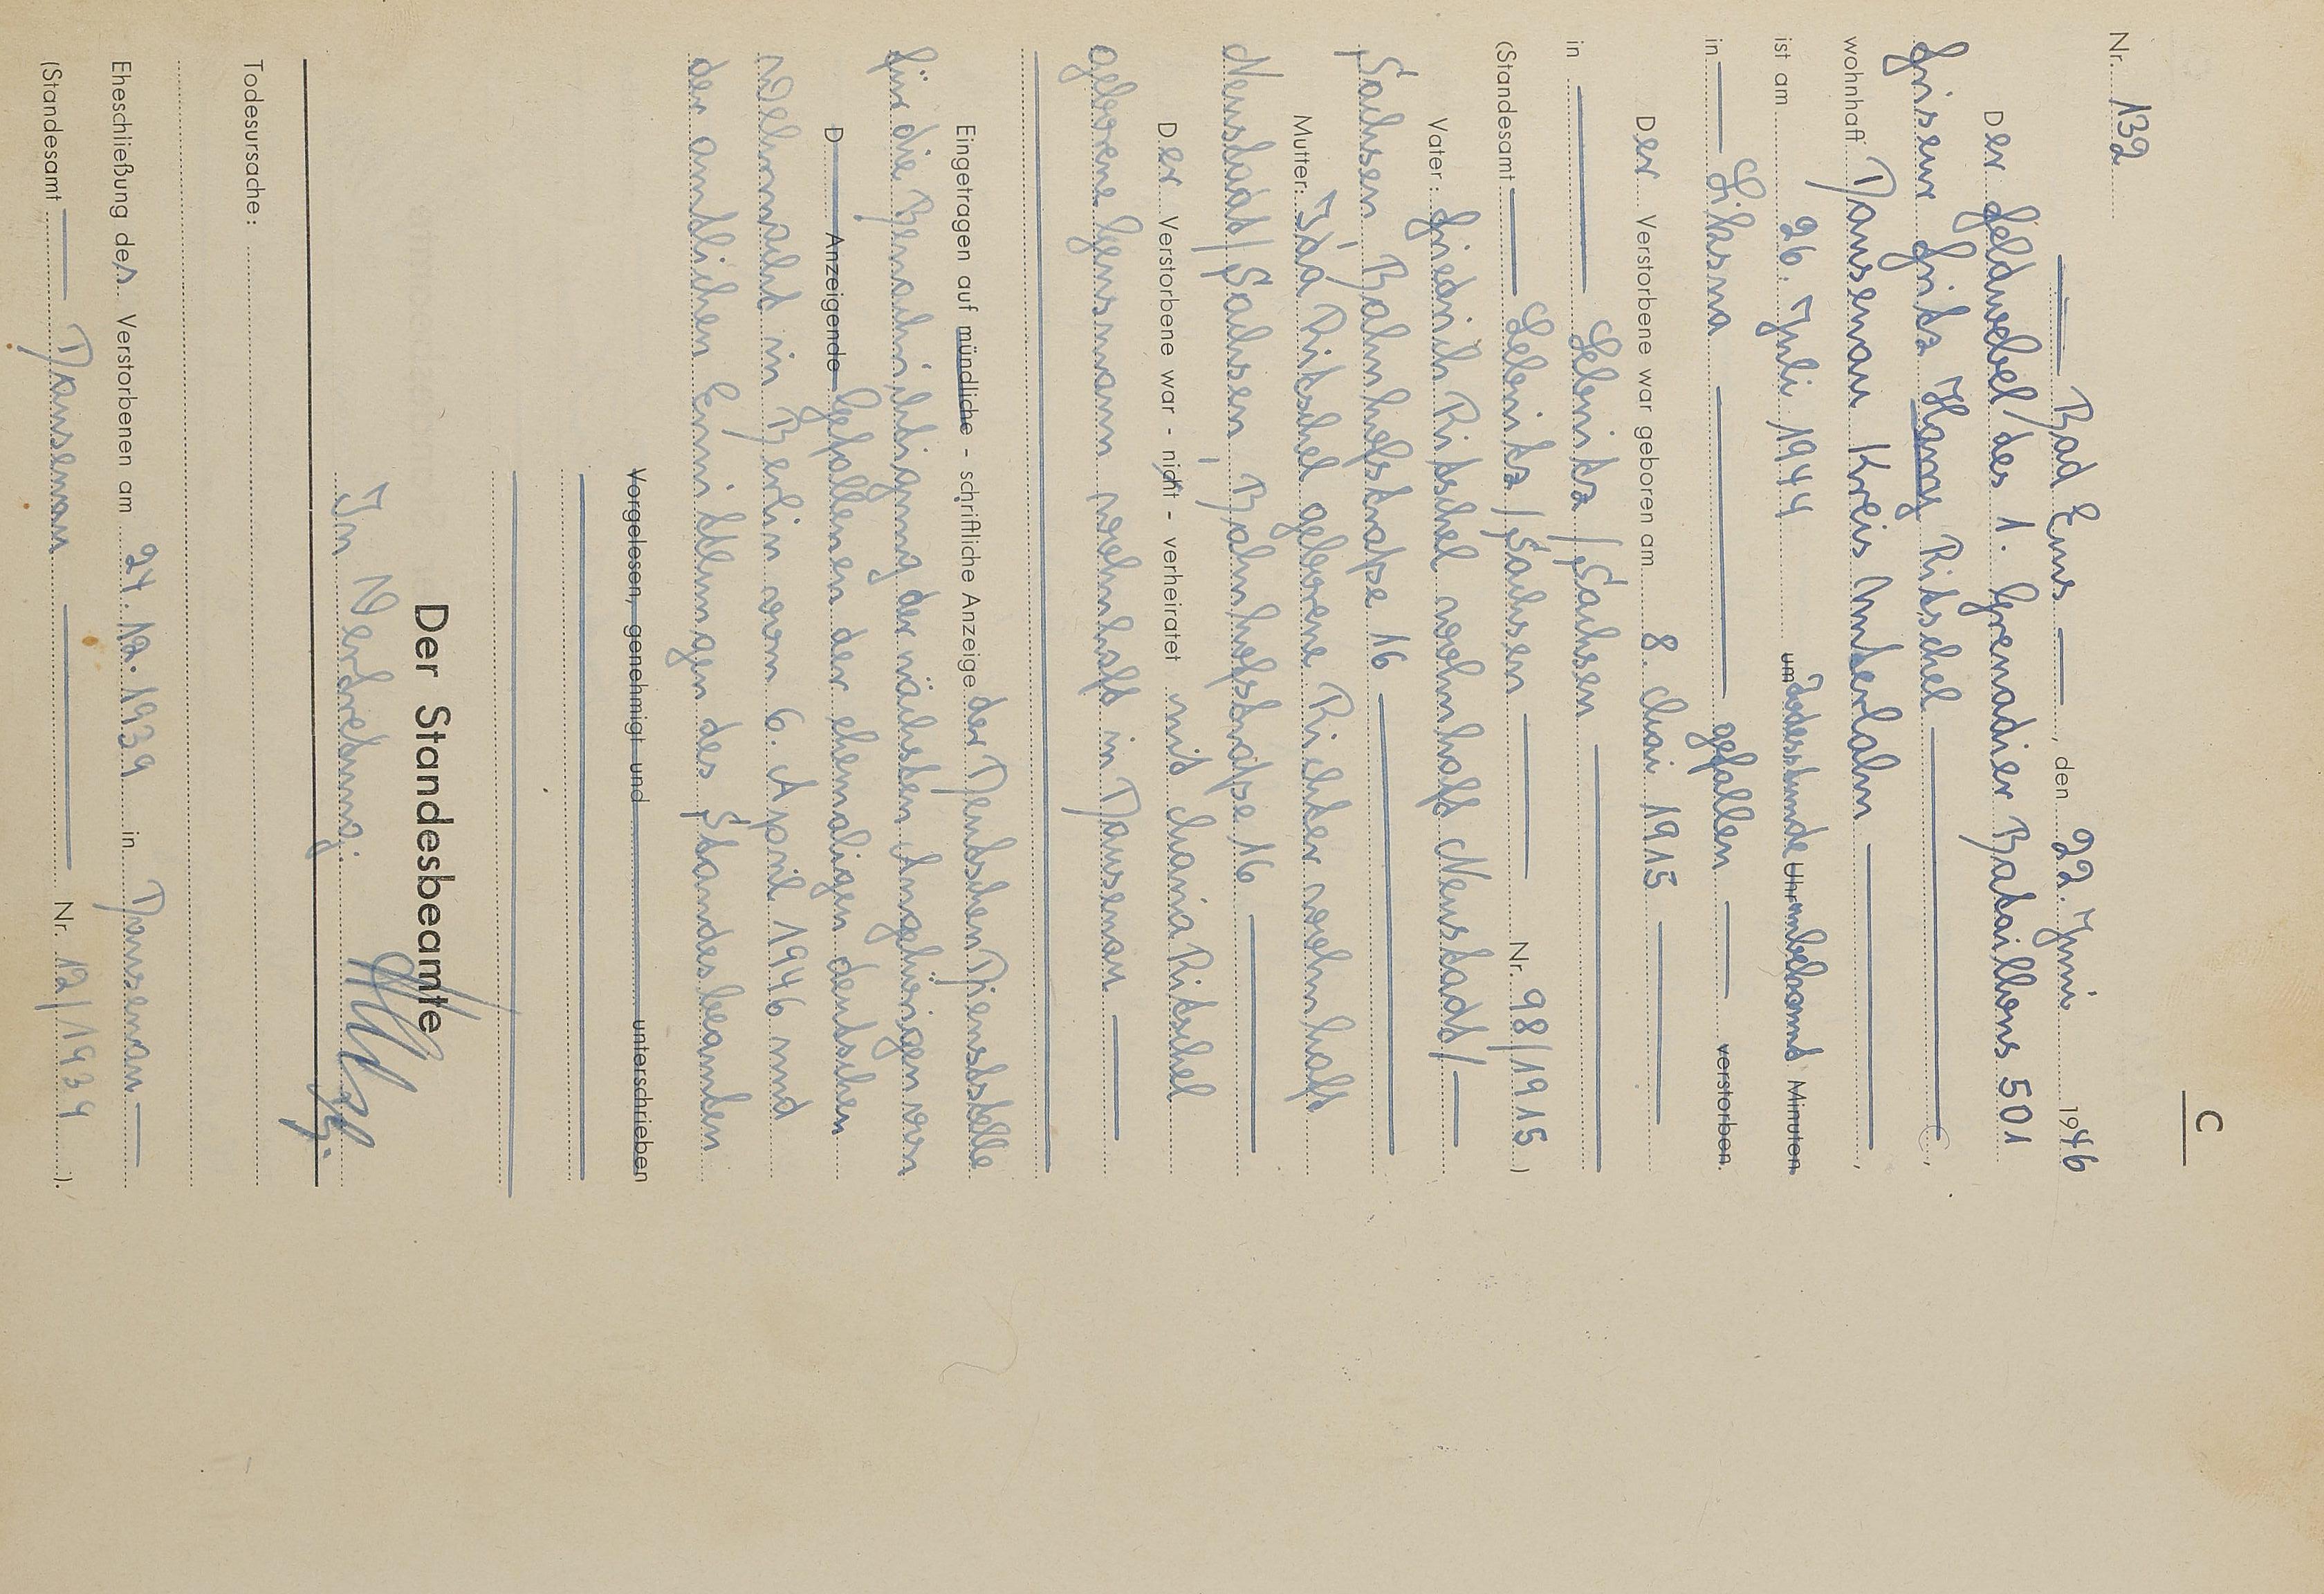 C
Nr. 132
Bad Ems, den 22. Juni 1946
Der Feldwebel/des 1. Grenadier Bataillons 501
Friseur Fritz Hans Ritschel,
wohnhaft Dausenau Kreis Unterlahn,
ist am 26. Juli 1944 um Todesstunde Uhr unbekannt Minuten
in Liksna gefallen verstorben.
Der Verstorbene war geboren am 8. Mai 1915
in Sebnitz/Sachsen
(Standesamt Sebnitz/Sachsen Nr. 98/1915)
Vater: Friedrich Ritschel wohnhaft Neustadt/
Sachsen, Bahnhofstraße 16
Mutter: Ida Ritschel geborene Richter wohnhaft
Neustadt/Sachsen, Bahnhofstraße 16
Der Verstorbene war - nicht - verheiratet mit Maria Ritschel
geborene Gensmann wohnhaft in Dausenau
Eingetragen auf mündliche - schriftliche Anzeige der Deutschen Dienststelle
für die Benachrichtigung der nächsten Angehörigen von
D Anzeigende Gefallenen der ehemaligen deutschen
Wehrmacht in Berlin vom 6. April 1946 und
den amtlichen Ermittlungen des Standesbeamten
Vorgelesen, genehmigt und unterschrieben
Der Standesbeamte
In Vertretung:
Todesursache:
Eheschließung des Verstorbenen am 24.12.1939 in Dausenau
(Standesamt Dausenau Nr. 12/1939).